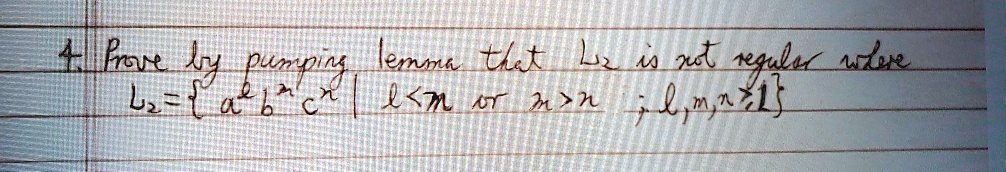 4. Prove by pumping lemma that L₂ is not regular where
L₂ = { aˡ bᵐ cⁿ | l<m or m>n ; l,m,n ≥ 1}